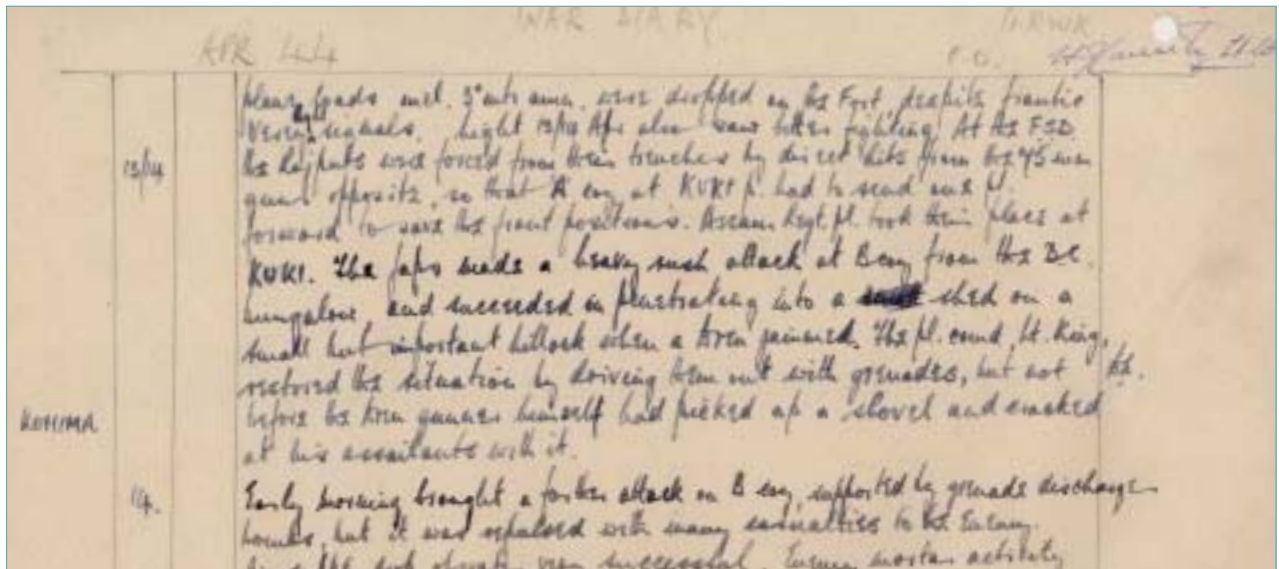 WAR DIARY
APR 44
4RWK
C.O.
plane loads incl. 3" mtr amn. were dropped on the Fort, despite frantic
Verey light signals. Night 13/14 Apr also saw bitter fighting. At the FSD
13/14 the Rajputs were forced from their trenches by direct hits from the 75 mm
guns opposite, so that A coy at KUKI P. had to send one pl.
forward to save the front positions. Assam Regt. pl. took their place at
KUKI. The Japs made a heavy rush attack at B coy from the D.C.
bungalow and succeeded in penetrating into a shed on a
small but important hillock when a bren jammed. The pl. comd, Lt. King,
restored the situation by driving them out with grenades, but not
KOHIMA before the bren gunner himself had picked up a shovel and cracked
at his assailants with it.
14. Early morning brought a further attack on B coy, supported by grenade discharger
bombs, but it was repulsed with many casualties to the Enemy.
very successful. Enemy mortar activity